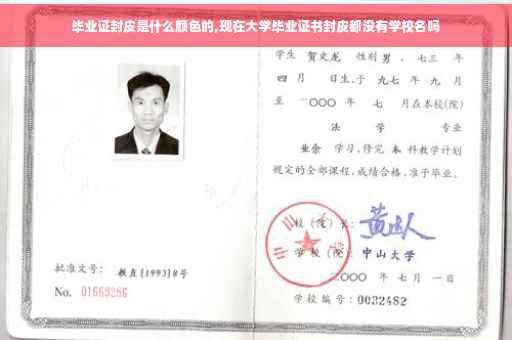 毕业证封皮是什么颜色的,现在大学毕业证书封皮都没有学校名吗
学生 贺文龙 性别 男 、七三 年
四 月 日生,于 九七 年 九 月
至 二〇〇〇 年 七 月在本校(院)
法 学 专业
业余 学习,修完 本 科教学计划
规定的全部课程,成绩合格,准予毕业。
校(院)长:
学校(院) 中山大学
二〇〇〇 年 七 月 一 日
批准文号: 教直(1993)8号
No. 01669286
学校编号:0032482